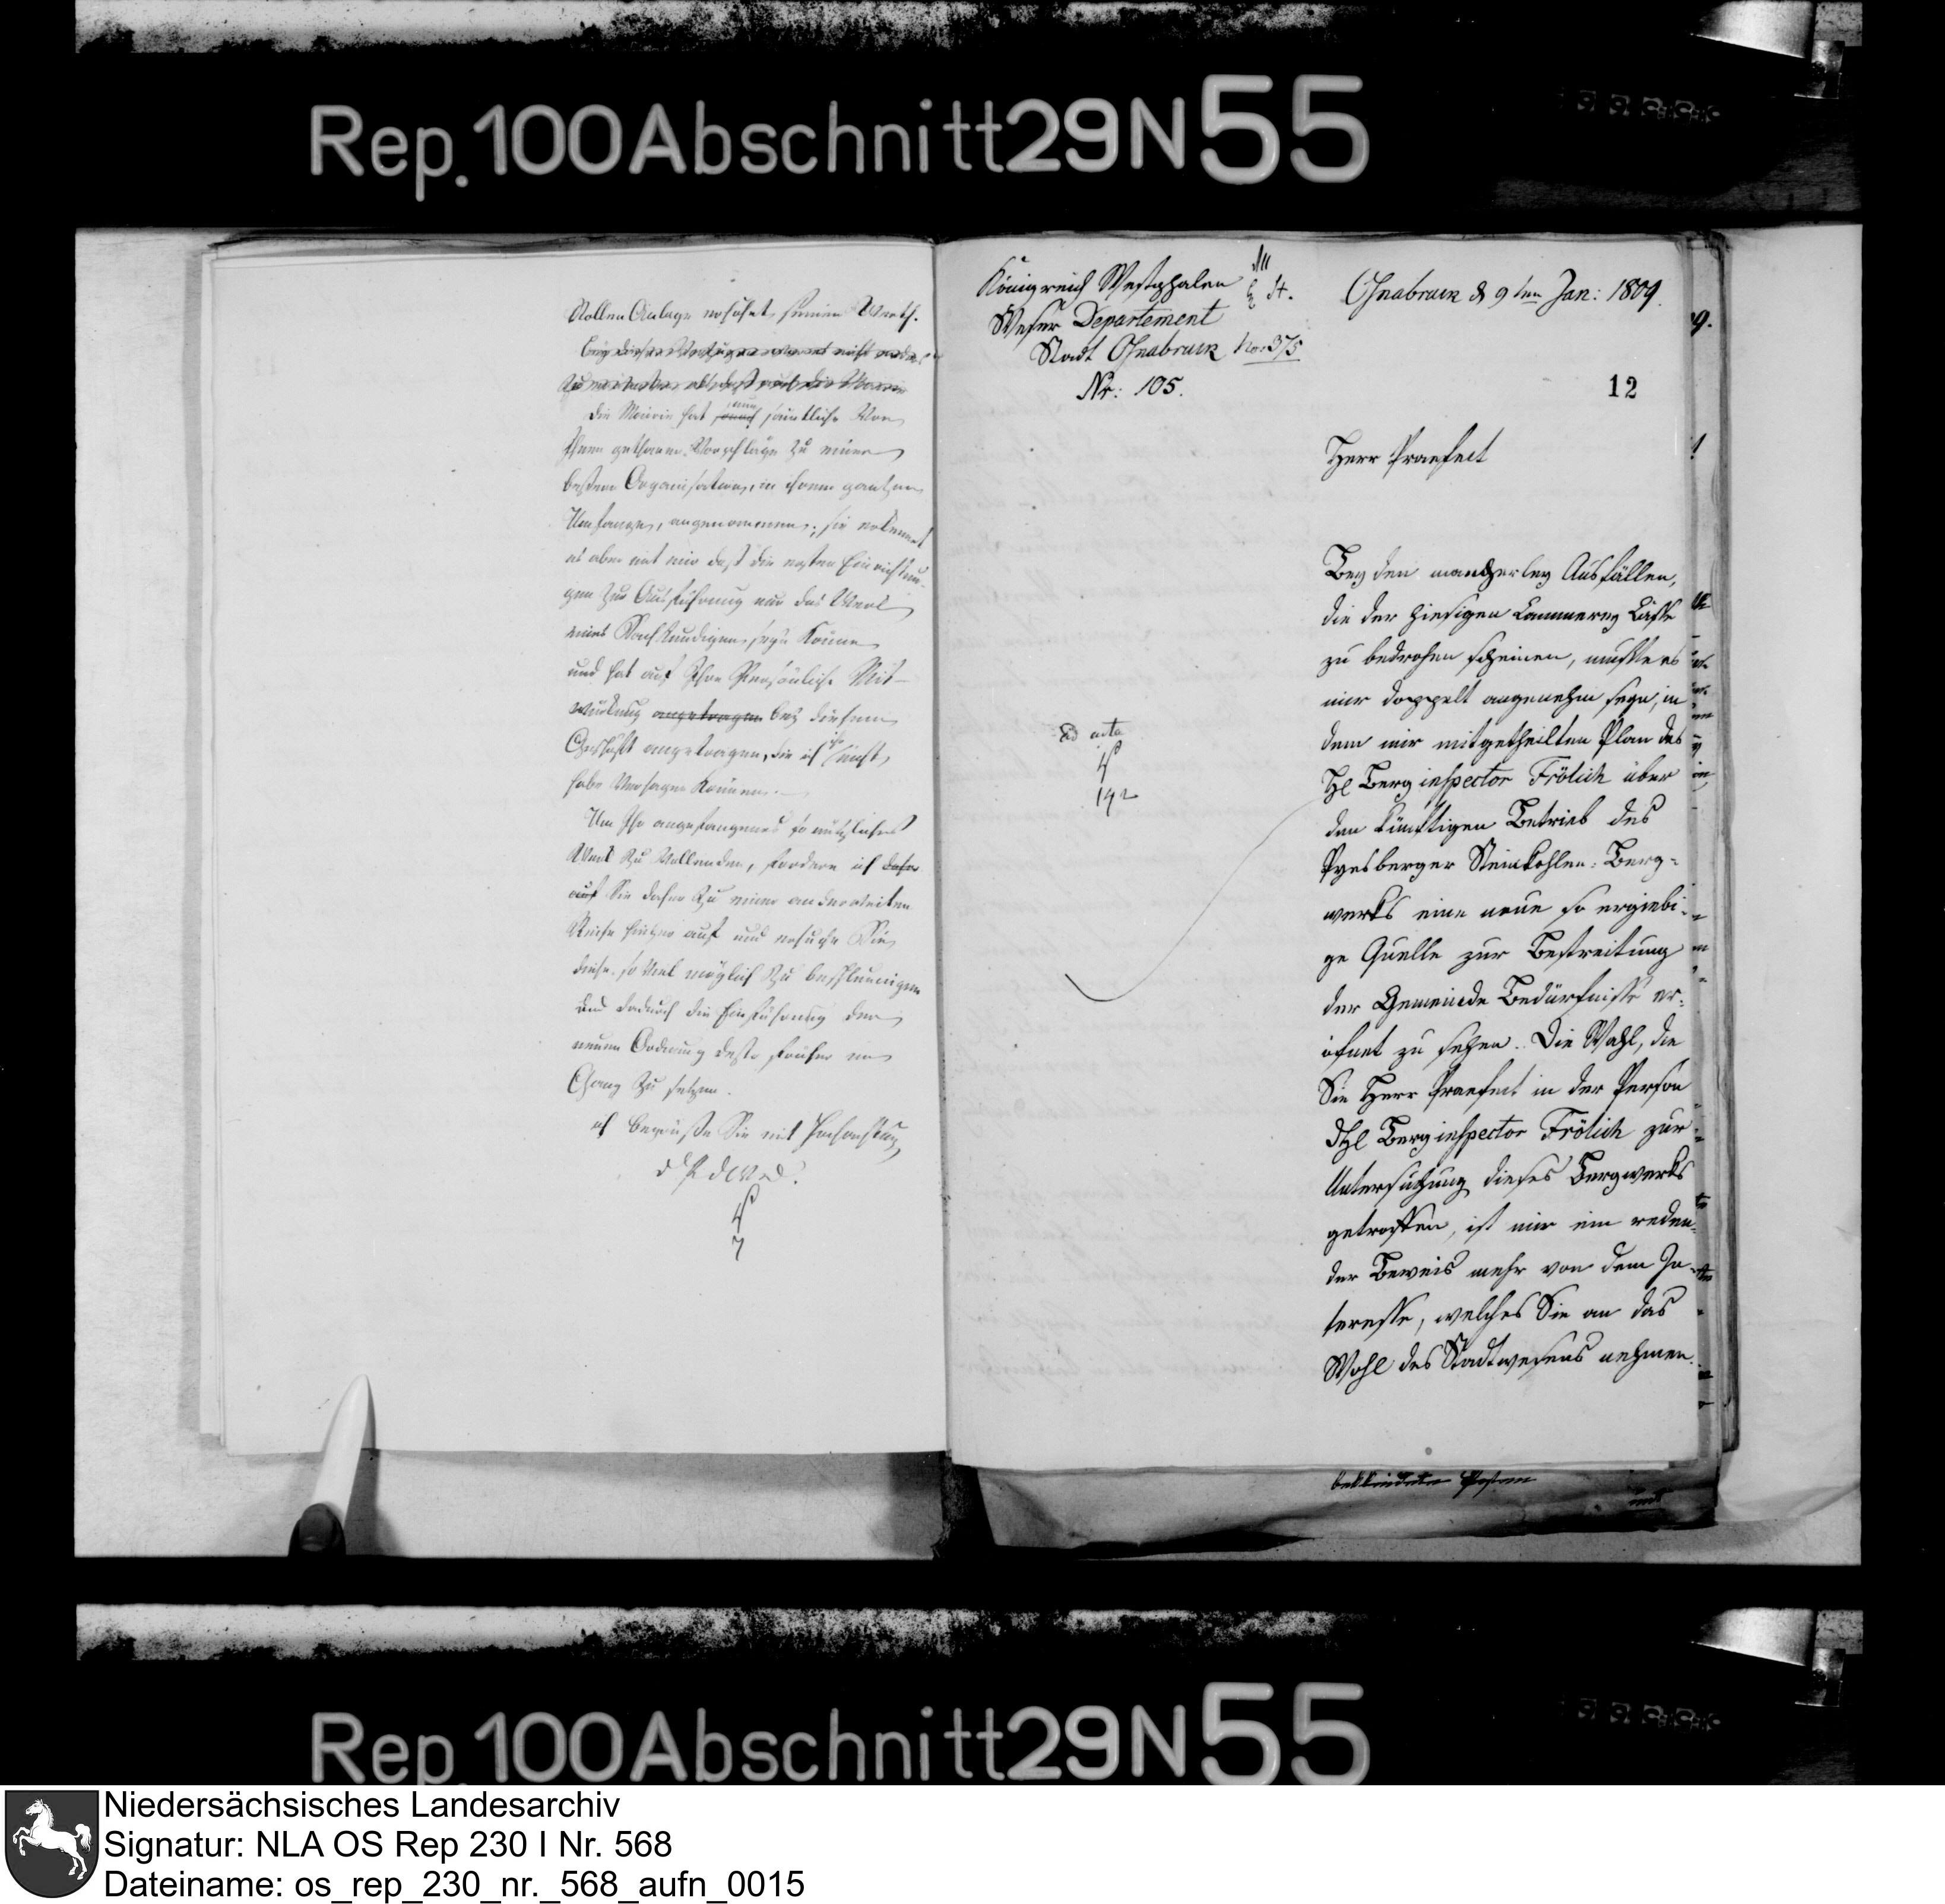 Rep. 100 Abschnitt 29 N 55
Stollen Anlage erhöhet seinen Werth.
Die Mairie hat sämtliche Von
Ihnen gethanen Vorschläge zu einer
bessern Organisation, in ihrem gantzen
Umfange, angenommen; sie erkennt
es aber mit mir daß die ersten Einrichtun-
gen zur Ausführung nur das Werk
eines Sachkundigen seyn könne
und hat auf Ihre Persönliche Mit-
würkung angetragen bey diesem
Geschäft angetragen, die ich ihr nicht
habe Versagen können.
Um Ihr angefangenes so nützliches
Werk zu Vollenden, fordere ich daher
auf Sie daher zu einer anderweiten
Reise hieher auf und ersuche Sie
diese so viel möglich zu beschleunigen
und dadurch die Einführung der
neuen Ordnung desto früher in
Gang zu setzen.
ich begrüße Sie mit Hochachtung
Königreich Westphalen
Weser Departement
Stadt Osnabruck No: 375
Nr: 105.
Osnabruck d 9ten Jan: 1809.
12
Herr Praefect
Ad acta
Bey den mancherley Ausfällen,
die der hiesigen Cammerey Casse
zu bedrohen scheinen, mußte es
mir doppelt angenehm seyn, in
dem mir mitgetheilten Plan des
H. Berginspector Frölich über
den künftigen Betrieb des
Pyesberger Steinkohlen-Berg-
werks eine neue so ergiebi-
ge Quelle zur Bestreitung
der Gemeinde Bedürfnisse er-
öfnet zu sehen. Die Wahl, die
Sie Herr Praefect in der Person
d H. Berginspector Frölich zur
Untersuchung dieses Bergwerks
getroffen, ist mir ein reden-
der Beweis mehr von dem In-
teresse, welches Sie an das
Wohl des Stadtwesens nehmen.
Rep. 100 Abschnitt 29 N 55
Niedersächsisches Landesarchiv
Signatur: NLA OS Rep 230 I Nr. 568
Dateiname: os_rep_230_nr._568_aufn_0015